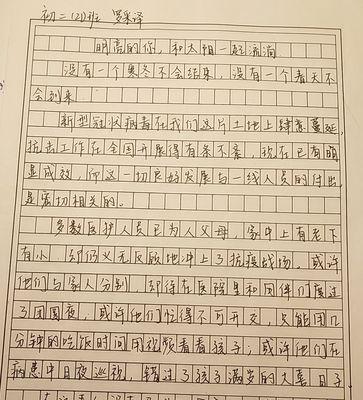 初二(21)班 罗采泽
明亮的你，和太阳一起流淌
没有一个寒冬不会结束，没有一个春天不
会到来
新型冠状病毒在我们这片土地上肆意蔓延，
抗击工作在全国开展得有条不紊，现在已有明
显成效，而这一切良好发展与一线人员的付出
是密切相关的。
多数医护人员已为人父母，家中上有老下
有小，却仍义无反顾地冲上了抗疫战场。或许
他们与家人分别，却待在医院里和同伴们度过
了团圆夜，或许他们忙得不可开交，只能用几
分钟的吃饭时间用视频看看孩子，或许他们在
病患中日夜巡视，错过了孩子满岁的大喜日子